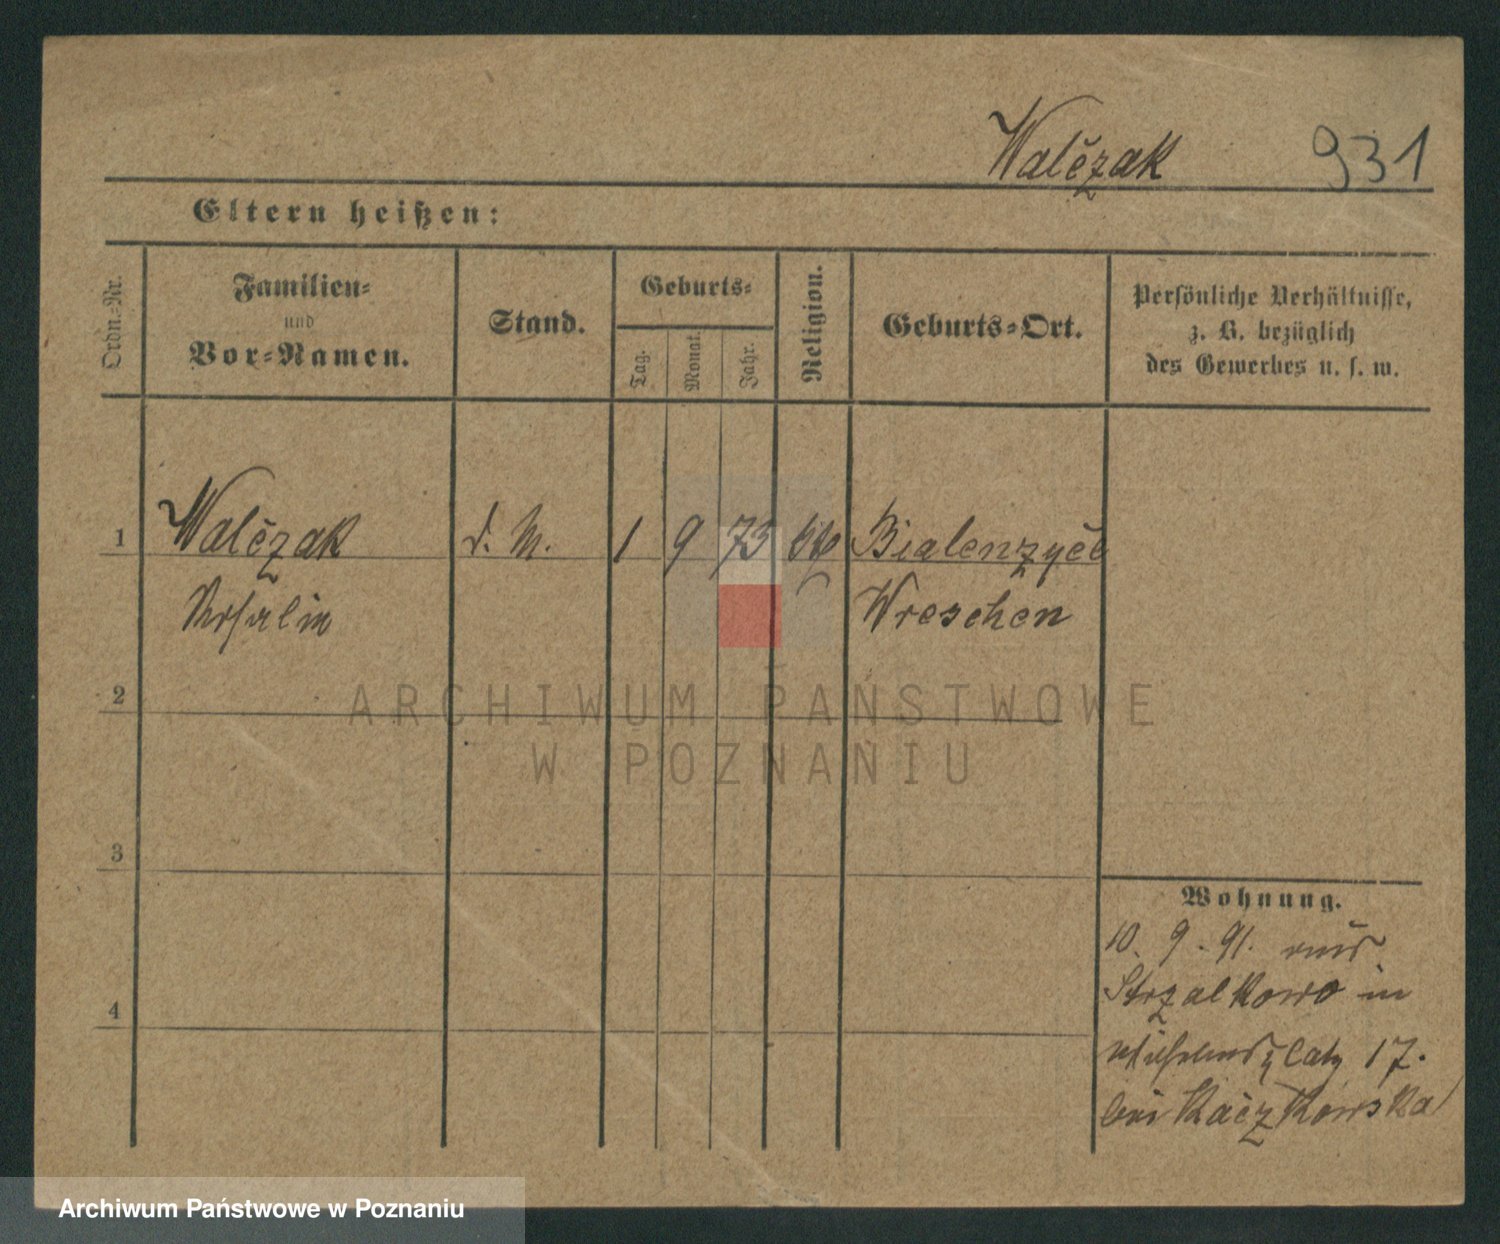 Walčzak 931
Eltern heißen:
Ordn.-Nr.
Familien-
und
Vor-Namen.
Stand.
Geburts-
Tag.
Monat.
Jahr.
Religion.
Geburts-Ort.
Persönliche Verhältnisse,
z. B. bezüglich
des Gewerbes u. s. w.
1 Walčzak d. M. 1 9 73 kk Bialenzyče
Wreschen
2
3
4
Wohnung.
10. 9. 91. aus
Strzalkowo in
Wilhelmsplatz 17.
bei Kačzkowska
ARCHIWUM PAŃSTWOWE
W POZNANIU
Archiwum Państwowe w Poznaniu